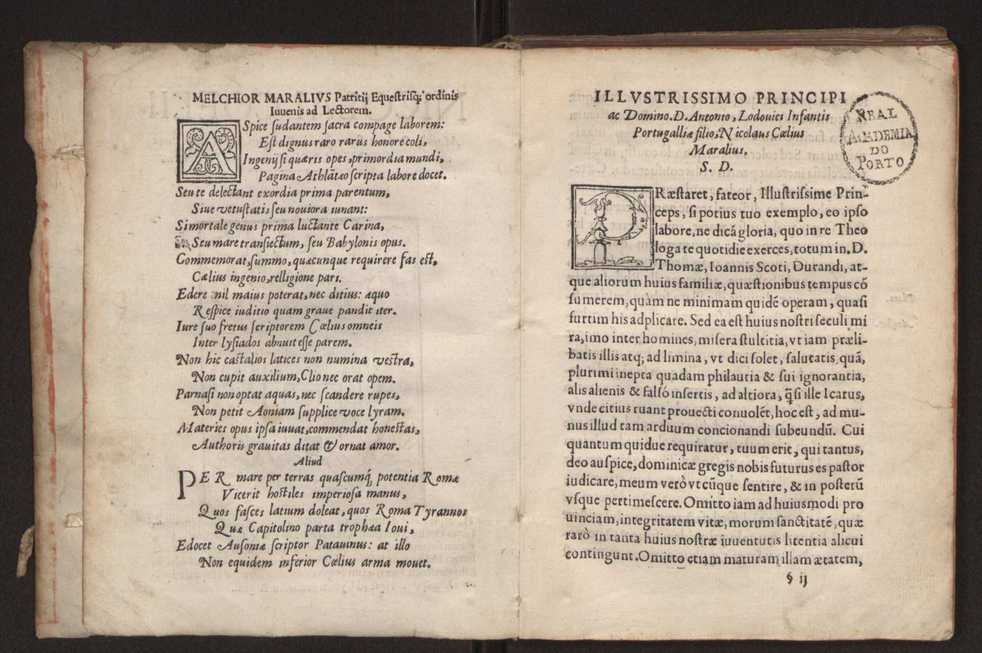 MELCHIOR MARALIVS Patritij Equestrisq; ordinis
Iuuenis ad Lectorem.
ASpice sudantem sacra compage laborem:
Est dignus raro rarus honore coli,
Ingenij si quæris opes, primordia mundi,
Pagina Athlãteo scripta labore docet.
Seu te delectant exordia prima parentum,
Siue vetustatis seu nouiora iuuant:
Si mortale genus prima luctante Carina,
Seu mare transiectum, seu Babylonis opus.
Commemorat, summo, quæcunque requirere fas est,
Cælius ingenio, relligione pari.
Edere nil maius poterat, nec ditius: aquo
Respice iuditio quam graue pandit iter.
Iure suo fretus scriptorem Cœlius omneis
Inter lysiados abnuit esse parem.
Non hic castalios latices non numina vestra,
Non cupit auxilium, Clio nec orat opem.
Parnasi non optat aquas, nec scandere rupes,
Non petit Aoniam supplice voce lyram.
Materies opus ipsa iuuat, commendat honestas,
Authoris grauitas ditat & ornat amor.
Aliud
PER mare per terras quascumq; potentia Romæ
Vicerit hostiles imperiosa manus,
Quos fasces latium doleat, quos Roma Tyrannos
Quæ Capitolino parta trophæa Ioui,
Edocet Ausoniæ scriptor Patauinus: at illo
Non equidem inferior Cælius arma mouet.
ILLVSTRISSIMO PRINCIPI
ac Domino. D. Antonio, Lodouici Infantis
Portugalliæ filio, Nicolaus Cœlius
Maralius,
S. D.
REAL
ACADEMIA
DO
PORTO
PRæstaret, fateor, Illustrissime Prin-
ceps, si potius tuo exemplo, eo ipso
labore, ne dicã gloria, quo in re Theo
loga te quotidie exerces, totum in. D.
Thomæ, Ioannis Scoti, Durandi, at-
que aliorum huius familiæ, quæstionibus tempus cõ
sumerem, quàm ne minimam quidẽ operam, quasi
furtim his adplicare. Sed ea est huius nostri seculi mi
ra, imo inter homines, misera stultitia, vt iam præli-
batis illis atq; ad limina, vt dici solet, salutatis, quã,
plurimi inepta quadam philautia & sui ignorantia,
alis alienis & falsò insertis, ad altiora, q̃si ille Icarus,
vnde citius ruant prouecti conuolẽt, hoc est, ad mu-
nus illud tam arduum concionandi subeundũ. Cui
quantum quidue requiratur, tuum erit, qui tantus,
deo auspice, dominicæ gregis nobis futurus es pastor
iudicare, meum verò vtcũque sentire, & in posterũ
vsque pertimescere. Omitto iam ad huiusmodi pro
uinciam, integritatem vitæ, morum sanctitatẽ, quæ
rarò in tanta huius nostræ iuuentutis licentia alicui
contingunt. Omitto etiam maturam illam ætatem,
§ ij